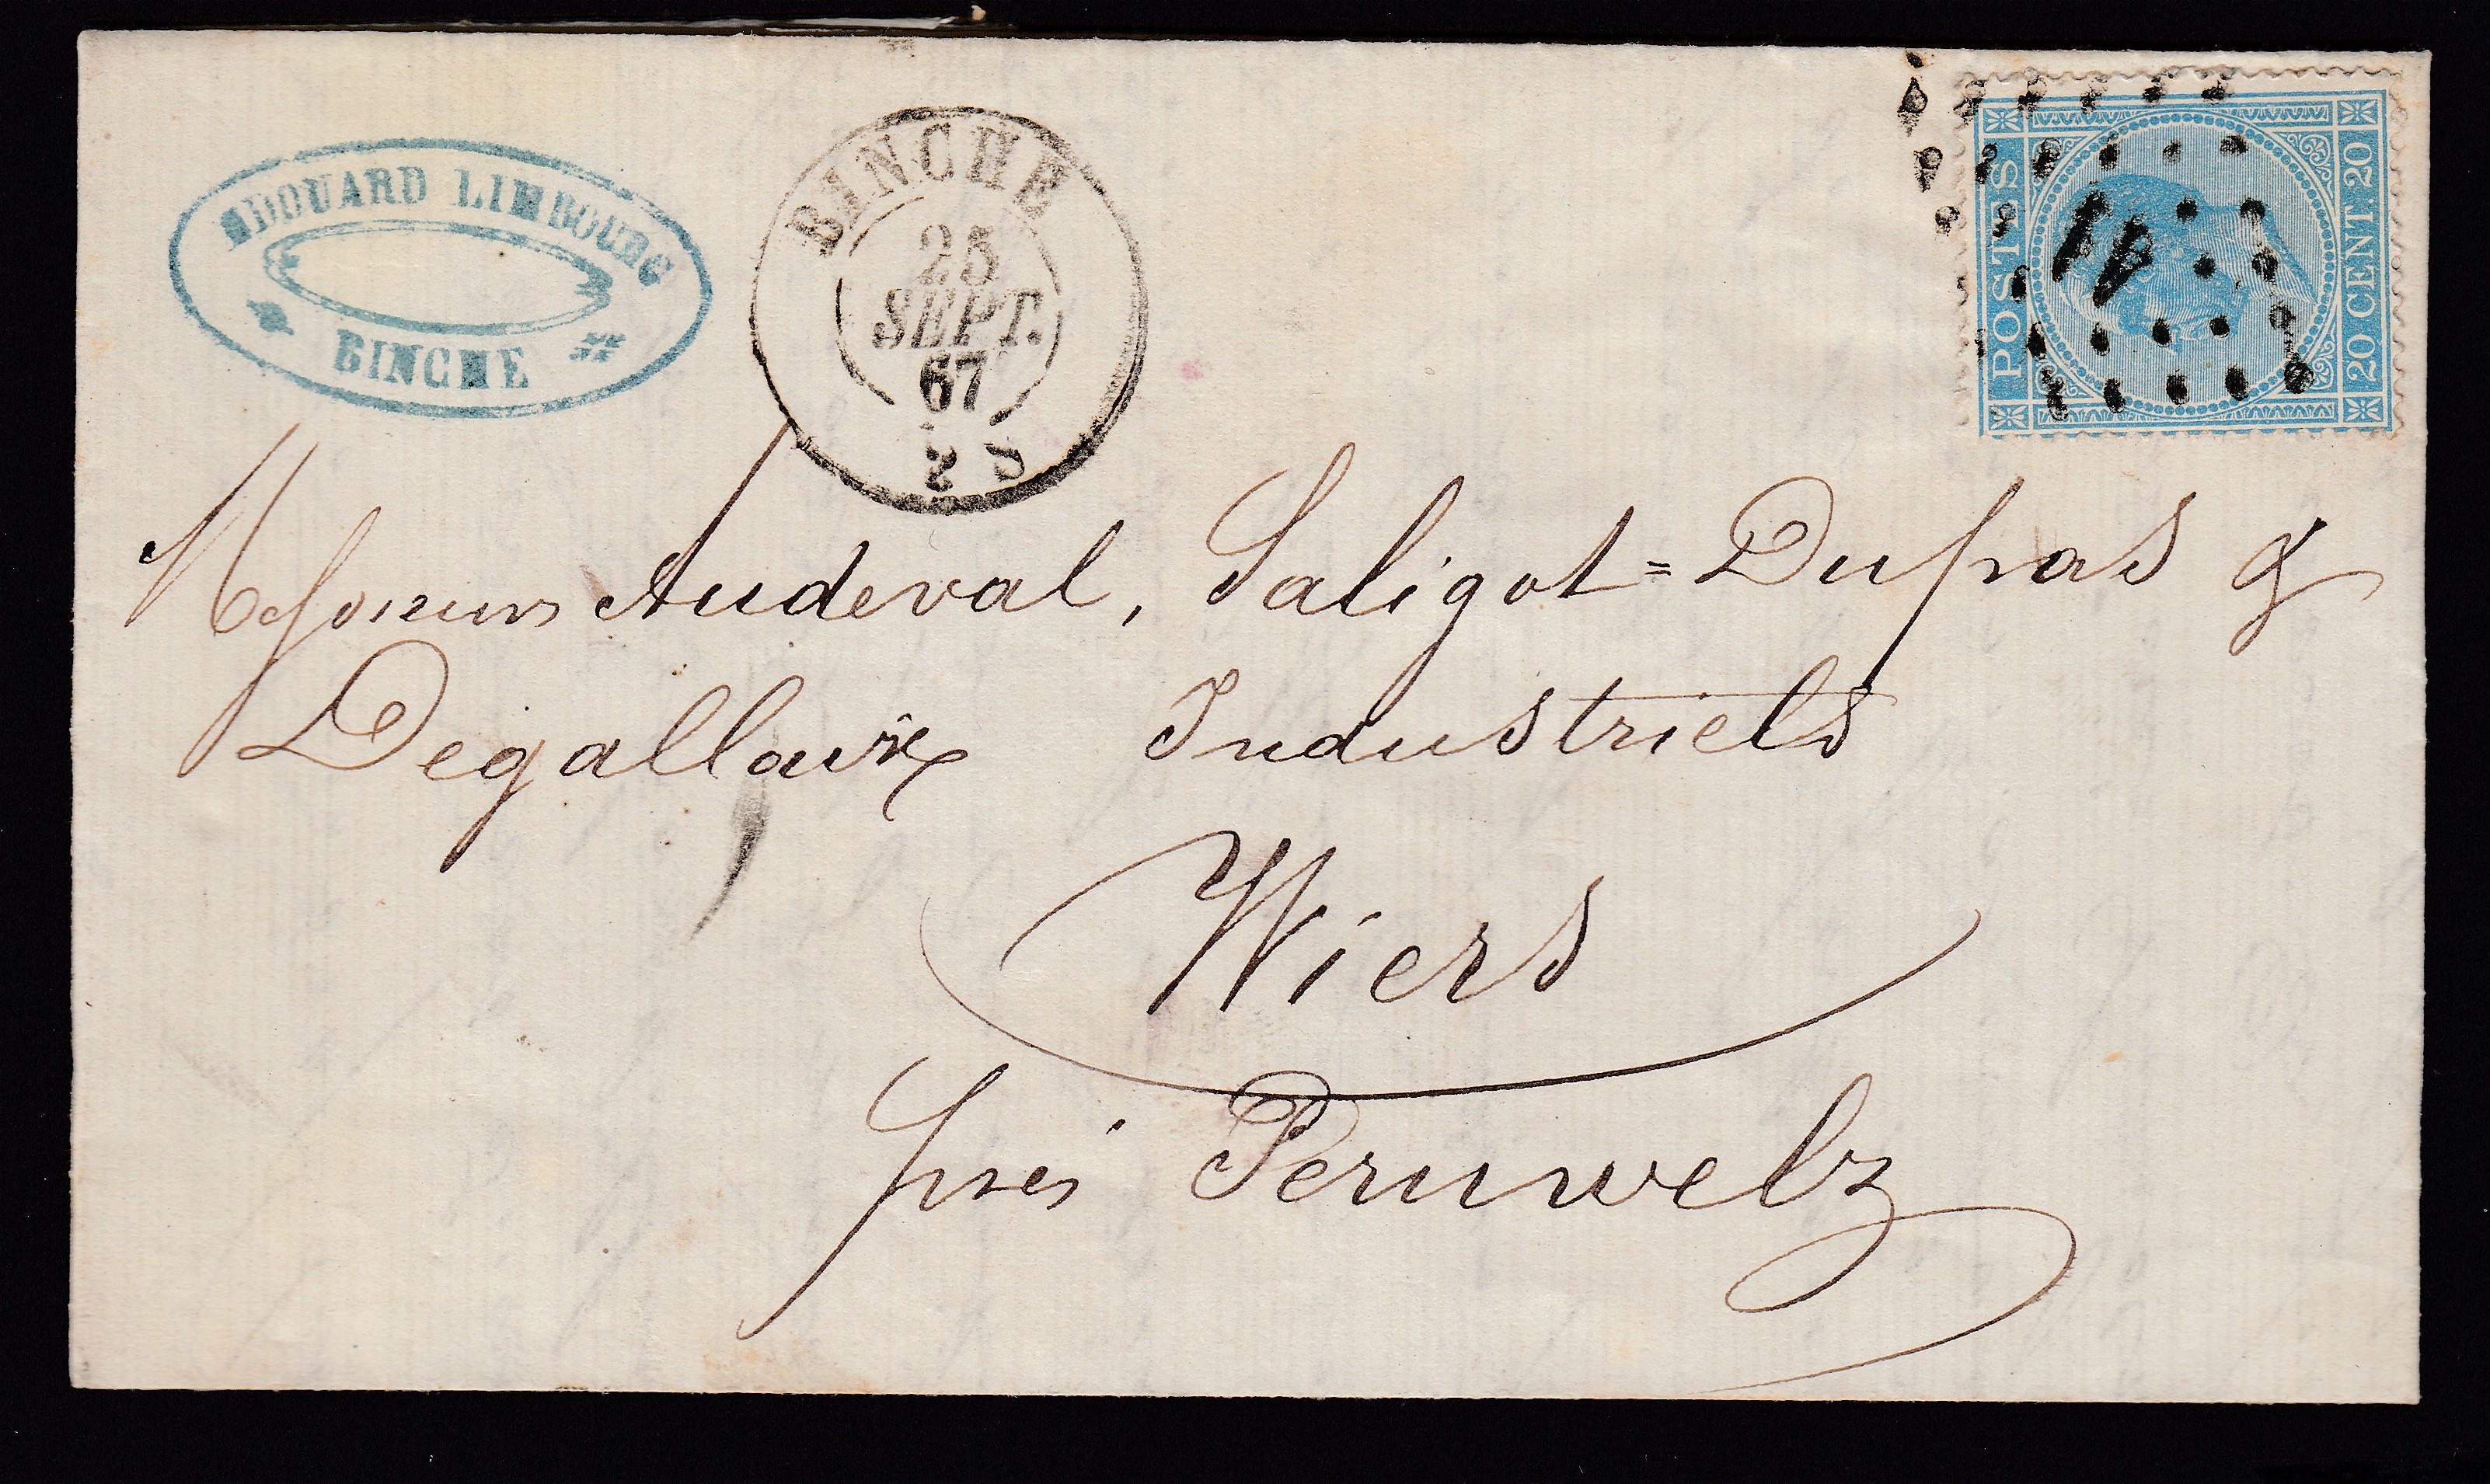 EDOUARD LIMBOURG
BINCHE
BINCHE
25
SEPT.
67
2 S
POSTES
20 CENT. 20
Messieurs Audeval, Saligot=Dupas &
Degallaix Industriels
Wiers
près Peruwelz